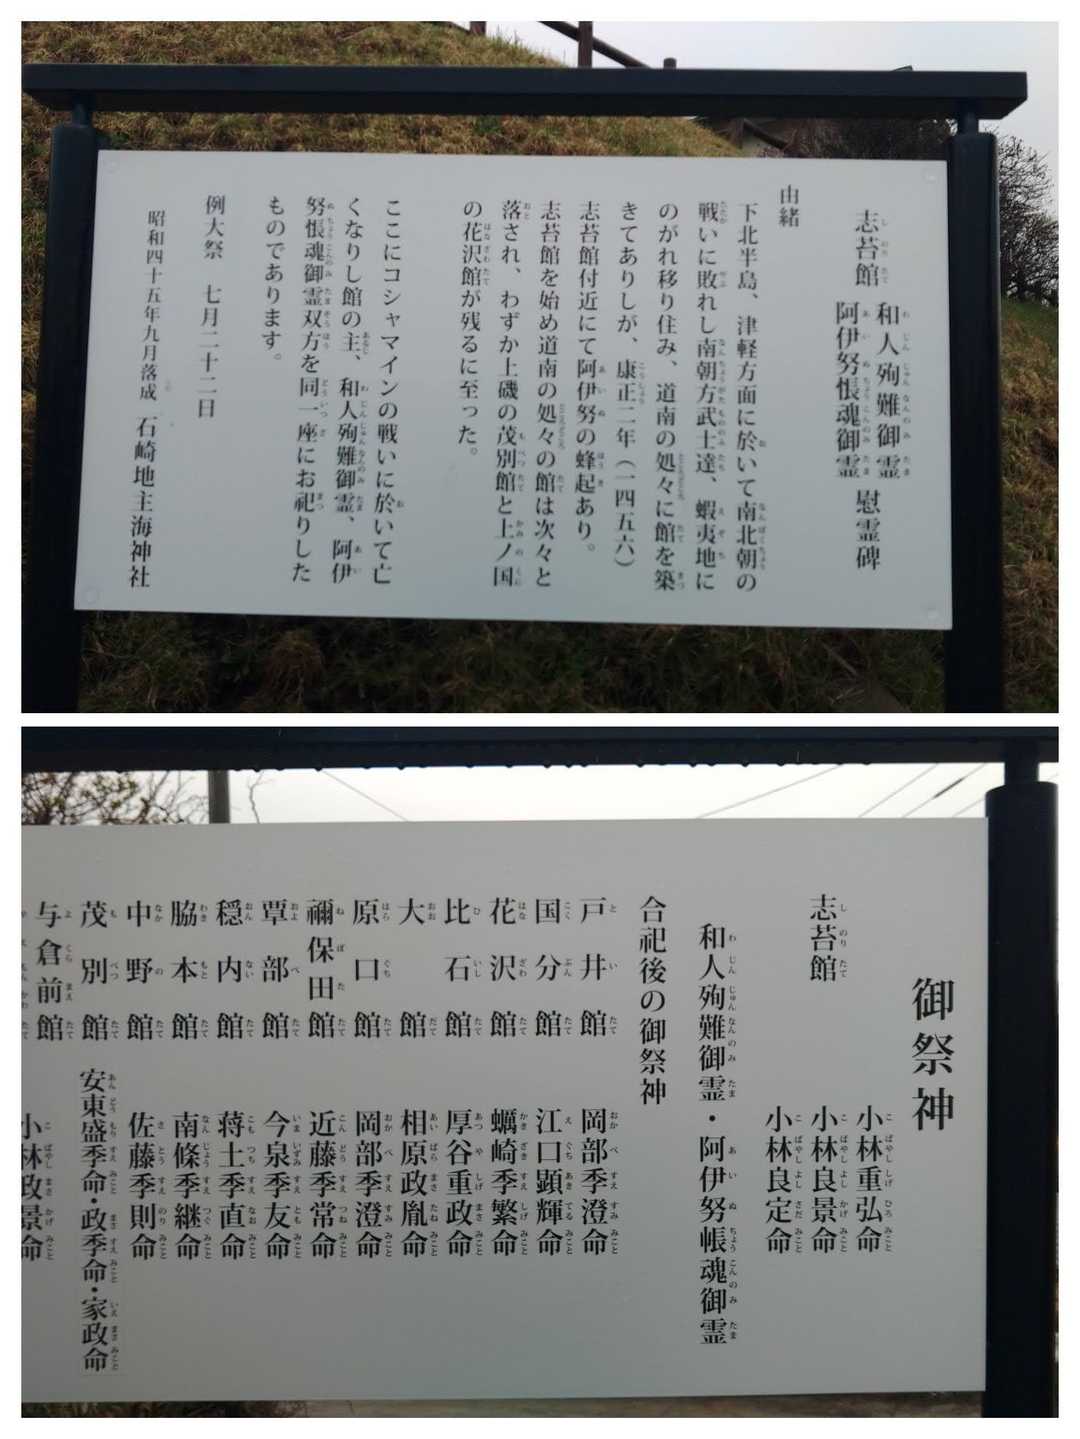 志苔館
和人殉難御霊
阿伊努悵魂御霊
慰霊碑
由緒
下北半島、津軽方面に於いて南北朝の
戦いに敗れし南朝方武士達、蝦夷地に
のがれ移り住み、道南の処々に館を築
きてありしが、康正二年(一四五六)
志苔館付近にて阿伊努の蜂起あり。
志苔館を始め道南の処々の館は次々と
落され、わずか上磯の茂別館と上ノ国
の花沢館が残るに至った。
ここにコシャマインの戦いに於いて亡
くなりし館の主、和人殉難御霊、阿伊
努悵魂御霊双方を同一座にお祀りした
ものであります。
例大祭 七月二十二日
昭和四十五年九月落成 石崎地主海神社
御祭神
小林重弘命
小林良景命
志苔館 小林良定命
和人殉難御霊・阿伊努帳魂御霊
合祀後の御祭神
戸井館 岡部季澄命
国分館 江口顕輝命
花沢館 蠣崎季繁命
比石館 厚谷重政命
大館 相原政胤命
原口館 岡部季澄命
禰保田館 近藤季常命
覃部館 今泉季友命
穏内館 蒋土季直命
脇本館 南條季継命
中野館 佐藤季則命
茂別館 安東盛季命・政季命・家政命
与倉前館 小林政景命